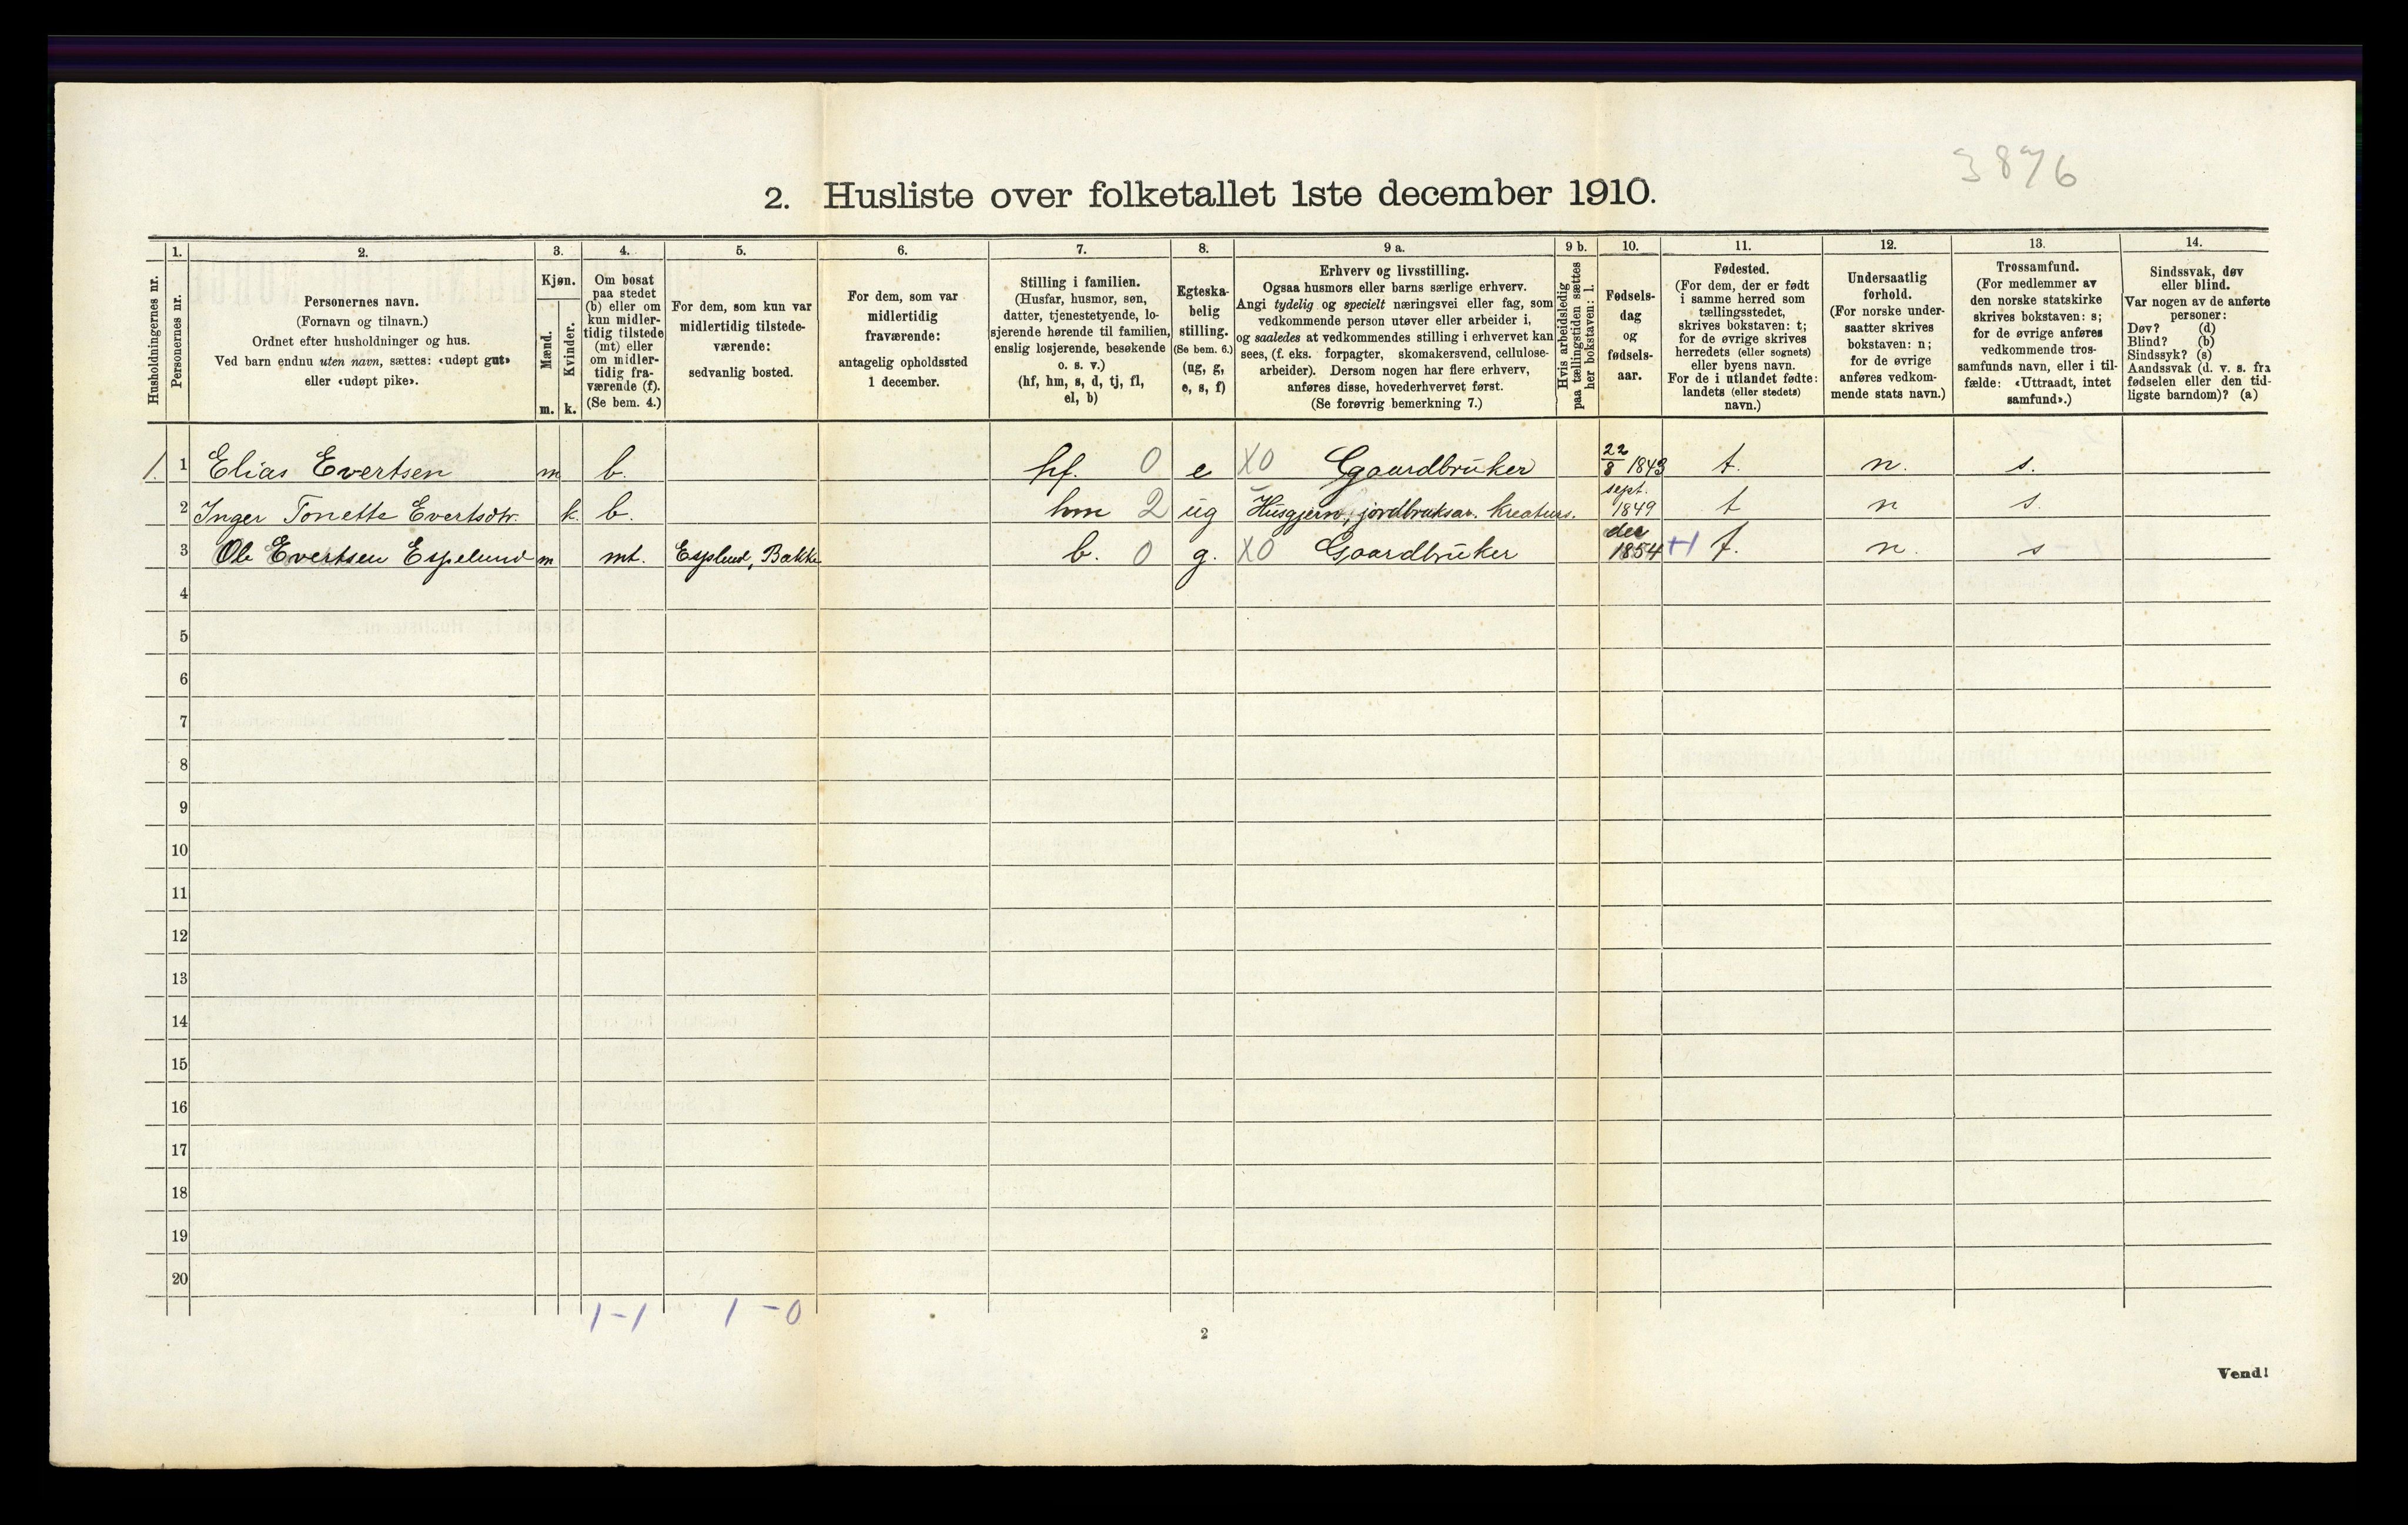 3876
2. Husliste over folketallet 1ste december 1910.
Husholdningernes nr.
1.
Personernes nr.
2.
Personernes navn.
(Fornavn og tilnavn.)
Ordnet efter husholdninger og hus.
Ved barn endnu uten navn, sættes: «udøpt gut»
eller «udøpt pike».
3.
Kjøn.
Mænd.
Kvinder.
m. k.
4.
Om bosat
paa stedet
(b) eller om
kun midler-
tidig tilstede
(mt) eller
om midler-
tidig fra-
værende (f).
(Se bem. 4.)
5.
For dem, som kun var
midlertidig tilstede-
værende:
sedvanlig bosted.
6.
For dem, som var
midlertidig
fraværende:
antagelig opholdssted
1 december.
7.
Stilling i familien.
(Husfar, husmor, søn,
datter, tjenestetyende, lo-
sjerende hørende til familien,
enslig losjerende, besøkende
o. s. v.)
(hf, hm, s, d, tj, fl,
el, b)
8.
Egteska-
belig
stilling.
(Se bem. 6.)
(ug, g,
e, s, f)
9 a.
Erhverv og livsstilling.
Ogsaa husmors eller barns særlige erhverv.
Angi tydelig og specielt næringsvei eller fag, som
vedkommende person utøver eller arbeider i,
og saaledes at vedkommendes stilling i erhvervet kan
sees, (f. eks. forpagter, skomakersvend, cellulose-
arbeider). Dersom nogen har flere erhverv,
anføres disse, hovederhvervet først.
(Se forøvrig bemerkning 7.)
9 b.
Hvis arbeidsledig
paa tællingstiden sættes
her bokstaven: l.
10.
Fødsels-
dag
og
fødsels-
aar.
11.
Fødested.
(For dem, der er født
i samme herred som
tællingsstedet,
skrives bokstaven: t;
for de øvrige skrives
herredets (eller sognets)
eller byens navn.
For de i utlandet fødte:
landets (eller stedets)
navn.)
12.
Undersaatlig
forhold.
(For norske under-
saatter skrives
bokstaven: n;
for de øvrige
anføres vedkom-
mende stats navn.)
13.
Trossamfund.
(For medlemmer av
den norske statskirke
skrives bokstaven: s;
for de øvrige anføres
vedkommende tros-
samfunds navn, eller i til-
fælde: «Uttraadt, intet
samfund».)
14.
Sindssvak, døv
eller blind.
Var nogen av de anførte
personer:
Døv? (d)
Blind? (b)
Sindssyk? (s)
Aandssvak (d. v. s. fra
fødselen eller den tid-
ligste barndom)? (a)
1. 1 Elias Evertsen m b. hf. 0 e X0 Gaardbruker 22/8 1843 t. n. s.
2 Inger Tonette Evertsdtr. k. b. hm 2 ug Husgjern, jordbruksar. kreaturs. sept. 1849 t n s.
3 Ole Evertsen Espelund m mt. Esplund, Bakke b. 0 g. X0 Gaardbruker 1854 +1 t. n. s
4
5
6
7
8
9
10
11
12
13
14
15
16
17
18
19
20
1-1 1-0
2
Vend!